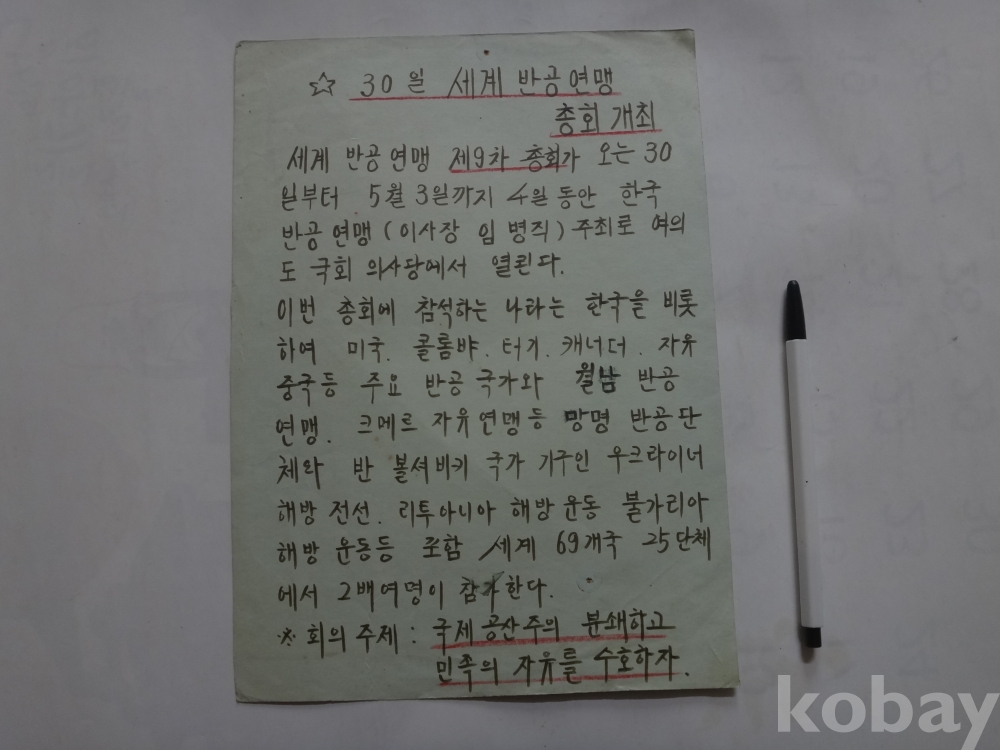 ☆ 30일 세계 반공연맹
총회 개최
세계 반공연맹 제9차 총회가 오는 30
일부터 5월 3일까지 4일 동안 한국
반공연맹 (이사장 임병직) 주최로 여의
도 국회 의사당에서 열린다.
이번 총회에 참석하는 나라는 한국을 비롯
하여 미국. 콜롬뱌. 터기. 캐너더. 자유
중국등 주요 반공 국가와 월남 반공
연맹. 크메르 자유연맹등 망명 반공단
체와 반 볼셔비키 국가 기구인 우크라이너
해방 전선. 리투아니아 해방운동 불가리아
해방 운동등 포함 세계 69개국 25단체
에서 2백여명이 참가한다.
※ 회의 주제 : 국제 공산주의 분쇄하고
민족의 자유를 수호하자.
kobay